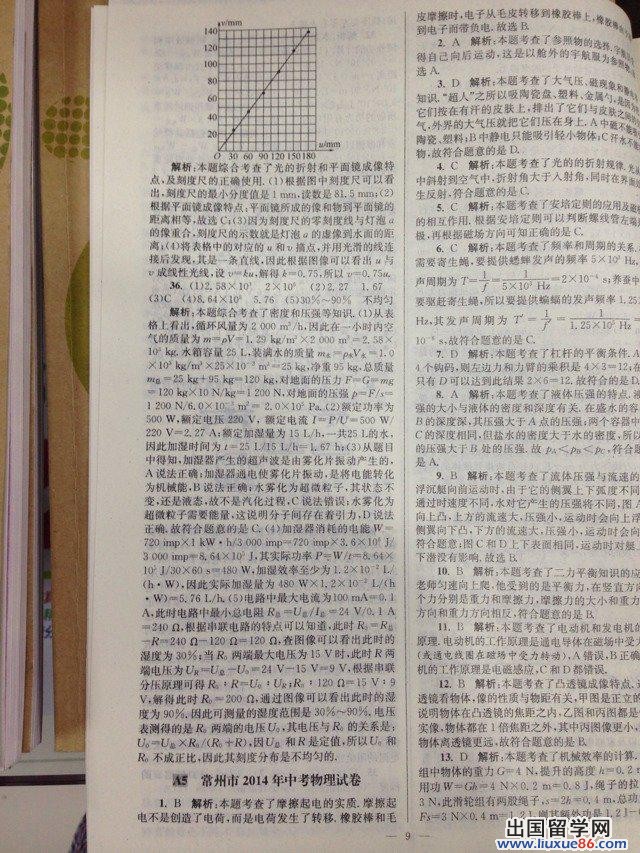 v/mm
140
120
100
80
60
40
20
O 30 60 90 120 150 180 u/mm
解析:本题综合考查了光的折射和平面镜成像特
点,及刻度尺的正确使用.(1)根据图中刻度尺可以看
出,刻度尺的最小分度值是1 mm,读数是81.5 mm;(2)
根据平面镜成像特点:平面镜所成的像和物到平面镜的
距离相等,故选C;(3)因为刻度尺的零刻度线与灯泡a
的像重合,刻度尺的示数就是灯泡a的虚像到水面的距
离;(4)将表格中的对应的u和v描点,并用光滑的线连
接后发现,其是一条直线,因此根据图像可以看出u与
v成线性光线,设v=ku,解得k=0.75,所以v=0.75u.
36. (1)2.58×10³ 2×10⁵ (2)2.27 1.67
(3)C (4)8.64×10⁵ 5.76 (5)30%~90% 不均匀
解析:本题综合考查了密度和压强等知识.(1)从表
格上看出,循环风量为2 000 m³/h,因此在一小时内空
气的质量为m=ρV=1.29 kg/m³×2 000 m³=2.58×
10³ kg.水箱容量25 L,装满水的质量m水=ρ水V水=1.0
×10³ kg/m³×25×10⁻³ m³=25 kg,净重95 kg,总质量
m总=25 kg+95 kg=120 kg,对地面的压力F=G=mg
=120 kg×10 N/kg=1 200 N,对地面的压强p=F/s=
1 200 N/6.0×10⁻³ m²=2.0×10⁵ Pa.(2)额定功率为
500 W,额定电压220 V,额定电流I=P/U=500 W/
220 V=2.27 A;额定加湿量为15 L/h,一共25 L的水,
因此加湿时间为t=25 L/15 L/h=1.67 h;(3)从题目
中得知,加湿器产生的超声波是由雾化片振动产生的,
A说法正确;加湿器通电使雾化片振动,是将电能转化
为机械能,B说法正确;水雾化为超微粒子,其状态不
变,还是液态,故不是汽化过程,C说法错误;水雾化为
超微粒子需要能量,这说明分子间存在着引力,D说法
正确.故符合题意的是C.(4)加湿器消耗的电能W=
720 imp×1 kW·h/3 000 imp=720 imp×3.6×10⁶ J/
3 000 imp=8.64×10⁵ J,其实际功率P=W/t=8.64×
10⁵ J/30×60 s=480 W,加湿效率至少为1.2×10⁻² L/
(h·W),因此实际加湿量为480 W×1.2×10⁻² L/(h
·W)=5.76 L/h.(5)电路中最大电流为100 mA=0.1
A,此时电路中最小总电阻R总=U总/I总=24 V/0.1 A
=240 Ω,根据串联电路的特点可以知道,此时R₀=R总
-R=240 Ω-120 Ω=120 Ω,查图像可以看出此时的
湿度为30%;当R₀两端最大电压为15 V时,此时R两
端电压为UR=U总-U₀=24 V-15 V=9 V,根据串联
分压原理可得R₀:R=U₀:UR;R₀:120 Ω=15 V:9
V,解得此时R₀=200 Ω,通过图像可以看出此时的湿
度为90%.因此可测量的湿度范围是30%~90%.电压
表测得的是R₀两端的电压U₀,其电压与R₀的关系是:
U₀=U总×R₀/(R₀+R),因U总和R是定值,所以U₀和
R₀不成正比,因此其刻度分布是不均匀的.
A5 常州市2014年中考物理试卷
1. B 解析:本题考查了摩擦起电的实质.摩擦起
电不是创造了电荷,而是电荷发生了转移.橡胶棒和毛
皮摩擦时,电子从毛皮转移到橡胶棒上,橡胶棒
到电子而带负电.故选B.
2. A 解析:本题考查了参照物的选择.宇航员
得自己向后运动,这是以舱外的宇航服为参照物
选A.
3. D 解析:本题考查了大气压、磁现象和静电
知识."超人"之所以吸陶瓷盘、塑料、金属勺,是因
它们按在有汗的皮肤上,排出了它们与皮肤之间的
气,外界的大气压就把它们压在身上.A中磁不能
陶瓷、塑料;B中静电只能吸引轻小物体;C汗水不能
物,故符合题意的是D.
4. C 解析:本题考查了光的折射规律.光从
中斜射到空气中,折射角大于入射角,同时在界面
生反射,符合题意的是C.
5. C 解析:本题考查了安培定则的应用及磁极
的相互作用.根据安培定则可以判断螺线管左端
极,再根据磁场方向可知正确的是C.
6. C 解析:本题考查了频率和周期的关系.
需要寄生蝇,要提供蟋蟀发声的频率5×10³ Hz,
声周期为T=1/f=1/5×10³ Hz=2×10⁻⁴ s;养蚕中
要驱赶寄生蝇,所以要提供蝙蝠的发声频率1.25
Hz,其发声周期为T′=1/f′=1/1.25×10⁵ Hz=
10⁻⁶ s,故符合题意的是C.
7. D 解析:本题考查了杠杆的平衡条件.
4个钩码,则左边力和力臂的乘积是4×3=12;在
只有D可以达到此结果2×6=12.故符合的是D.
8. A 解析:本题考查了液体压强的特点.液
强的大小与液体的密度和深度有关.在盛水的容
B的深度深,其压强大于A点的压强;两个容器中
C的深度相同,但盐水的密度大于水的密度,所以
的压强大于B处的压强.故pA<pB<pC,符合题
是A.
9. B 解析:本题考查了流体压强与流速的
浮沉艇向前运动时,由于它的侧翼上下弧度不同
通过时速度不同,水对它产生的压强将不同,图A
向上凸,上方的流速大,压强小,运动时会向上浮
侧翼向下凸,下方的流速大,压强小,运动时会向
符合题意;图C和D上下表面相同,运动时对艇
下潜没有影响.故选B.
10. B 解析:本题考查了二力平衡知识的应
老师匀速向上爬,他受到的是平衡力,在竖直方向
个力分别是重力和摩擦力,摩擦力的大小和重力
方向和重力方向相反,符合题意的是B.
11. B 解析:本题考查了电动机和发电机的
原理.电动机的工作原理是通电导体在磁场中受力
(或通电线圈在磁场中受力转动),A错误,B正确
机的工作原理是电磁感应,C和D都错误.
12. B 解析:本题考查了凸透镜成像特点.
透镜看物体,像的性质与物距有关,甲图是正立的
说明物体在凸透镜的焦距之内,乙图和丙图都是
实像,物体都在1倍焦距之外,其中丙图像更小,
物体离透镜更远,故符合题意的是B.
13. D 解析:本题考查了机械效率的计算.
组中物体的重力G=4 N,提升的高度h=0.2
用功W=Gh=4 N×0.2 m=0.8 J,绳子的拉
3 N,此滑轮组有两股绳子,s=2h=0.4 m,总功
Fs=3 N×0.4 m=1.2 J,则其额外功是1.2J-
9
出国留学网
www.liuxue86.com